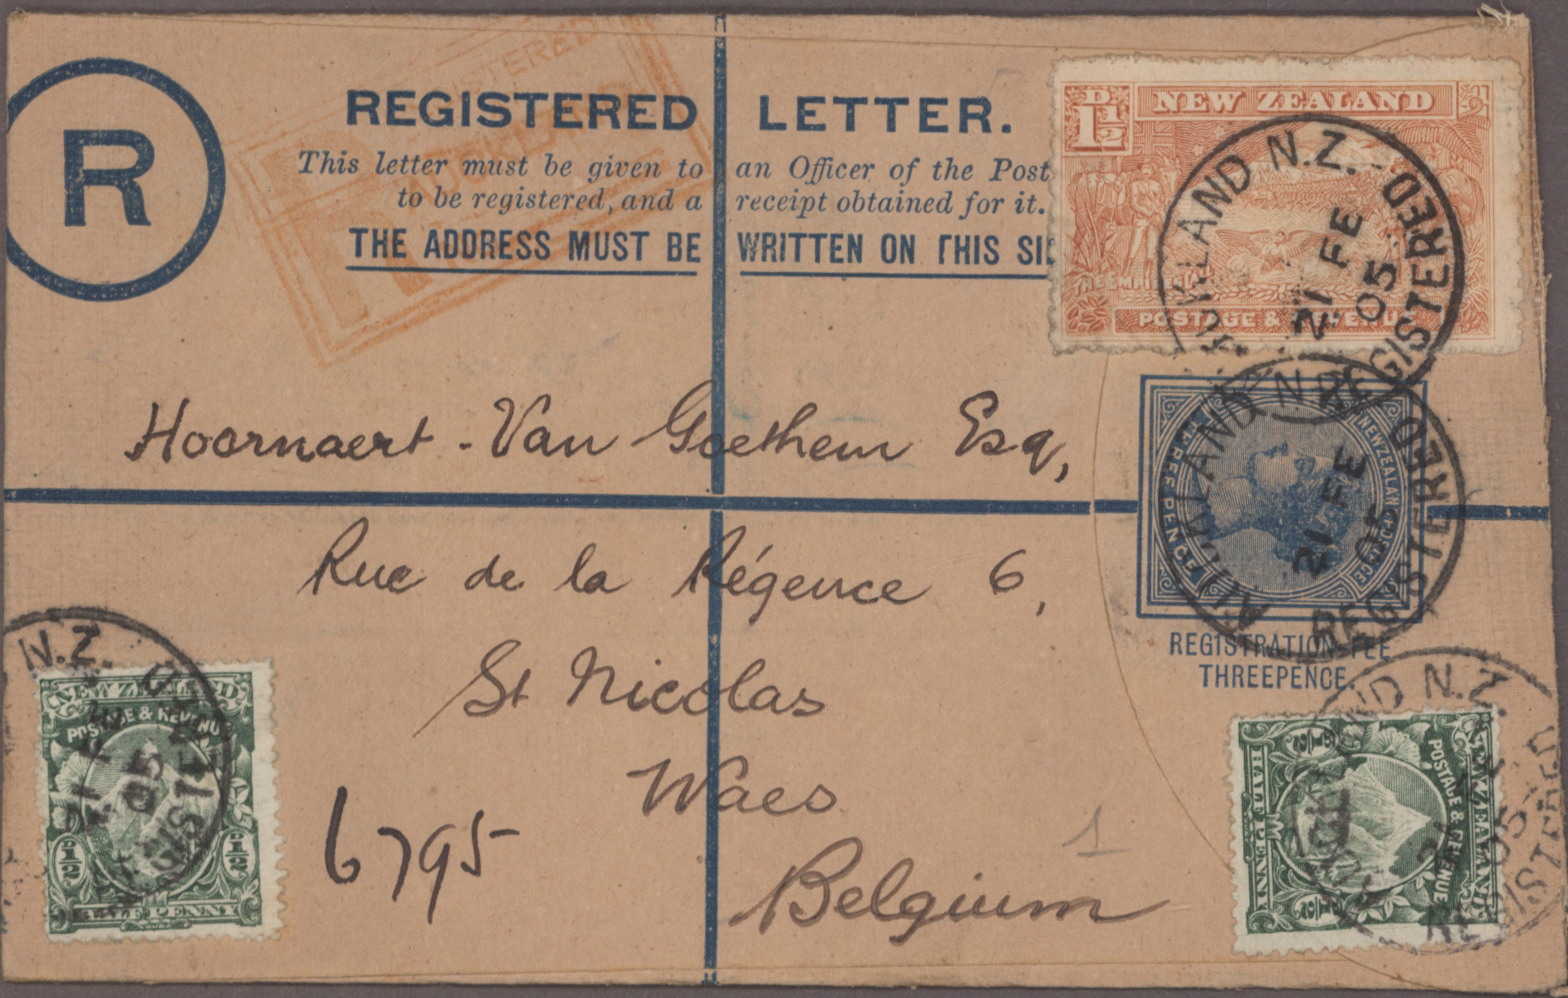 R
REGISTERED LETTER.
This letter must be given to an Officer of the Post
to be registered, and a receipt obtained for it.
THE ADDRESS MUST BE WRITTEN ON THIS SI
REGISTERED
1½D
NEW ZEALAND
POSTAGE & REVENUE
AUCKLAND N.Z.
21 FE
05
REGISTERED
Hoornaert-Van Goethem Esq,
Rue de la Régence 6,
St Nicolas
Waes
Belgium
6795
1
NEW ZEALAND
THREE PENCE
AUCKLAND N.Z.
21 FE
05
REGISTERED
REGISTRATION FEE
THREEPENCE.
N.Z.
NEW ZEALAND
POSTAGE & REVENUE
½ ½
HALF PENNY
AUCKLAND N.Z.
05
REGISTERED
NEW ZEALAND
POSTAGE & REVENUE
½ ½
HALF PENNY